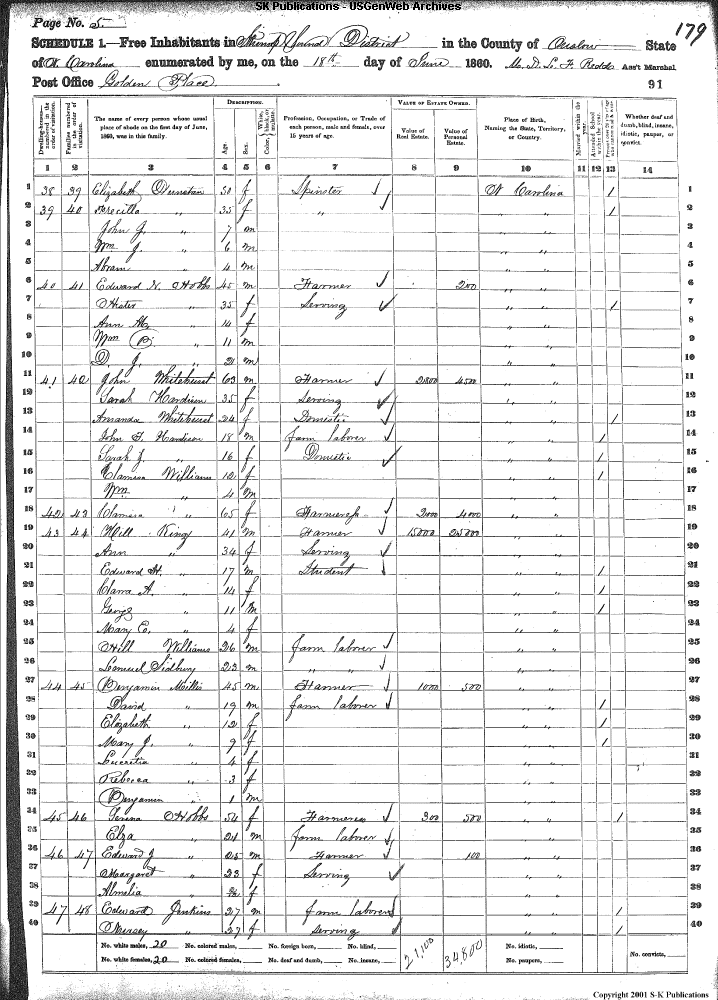 SK Publications - USGenWeb Archives
Page No. 5
179
SCHEDULE 1.—Free Inhabitants in Stump Sound District in the County of Onslow State
of N Carolina enumerated by me, on the 18th day of June 1860. Ass't Marshal
Post Office Golden Place
91
Dwelling-houses numbered in the order of visitation.
Families numbered in the order of visitation.
The name of every person whose usual place of abode on the first day of June, 1860, was in this family.
DESCRIPTION.
Age.
Sex.
Color, White, black, or mulatto.
Profession, Occupation, or Trade of each person, male and female, over 15 years of age.
VALUE OF ESTATE OWNED.
Value of Real Estate.
Value of Personal Estate.
Place of Birth, Naming the State, Territory, or Country.
Married within the year.
Attended School within the year.
Whether deaf and dumb, blind, insane, idiotic, pauper, or convict.
1 2 3 4 5 6 7 8 9 10 11 12 13 14
1 38 39 Elizabeth 50 f Spinster N Carolina / 1
2 39 40 " 35 f " " " / 2
3 John J. " 7 m " " 3
4 Wm J. " 6 m " " 4
5 Abram " 4 m " " 5
6 40 41 Edward N. Hobbs 45 m Farmer 200 " " 6
7 Hester " 35 f Serving " " / 7
8 Ann M. " 14 f " " 8
9 Wm B. " 11 m " " 9
10 D. J. " m " " 10
11 41 42 John Whitehurst 63 m Farmer 4500 " " 11
12 Sarah Hardison 35 f Serving " " 12
13 Amanda Whitehurst 24 f Domestic " " / 13
14 John F. Hardison 18 m farm laborer " " / 14
15 Sarah J. " 16 f Domestic " " / 15
16 Clamesa Williams 12 f " " / 16
17 Wm. " 4 m " " 17
18 42 43 Clamesa " 65 f Farmeress 2000 4000 " " 18
19 43 44 Hill King 41 m Farmer 15000 25000 " " 19
20 Ann " 34 f Serving " " 20
21 Edward H. " 17 m Student " " / 21
22 Clara A. " 14 f " " / 22
23 George " 11 m " " / 23
24 Mary C. " 4 f " " 24
25 Hill Williams 26 m farm laborer " " 25
26 Lemuel Sidbury 23 m " " " " 26
27 44 45 Benjamin Millis 45 m Farmer 1000 500 " " 27
28 David " 19 m farm laborer " " / 28
29 Elizabeth " 12 f " " / 29
30 Mary J. " 9 f " " / 30
31 Lucretia " 4 f " " 31
32 Rebecca " 3 f " " 32
33 Benjamin " 1 m " " 33
34 45 46 Hobbs 54 f Farmeress 300 500 " " / 34
35 Elza " 21 m farm laborer " " 35
36 46 47 Edward J " 25 m Farmer 100 " " 36
37 Margaret " 23 f Serving " " 37
38 Almelia " f " " 38
39 47 48 Edward Jenkins 27 m farm laborer " " / 39
40 " 27 f Serving " " / 40
No. white males, 20 No. colored males, No. foreign born, No. blind, 21,100 34,800 No. idiotic,
No. white females, 20 No. colored females, No. deaf and dumb, No. insane, No. paupers, No. convicts,
Copyright 2001 S-K Publications